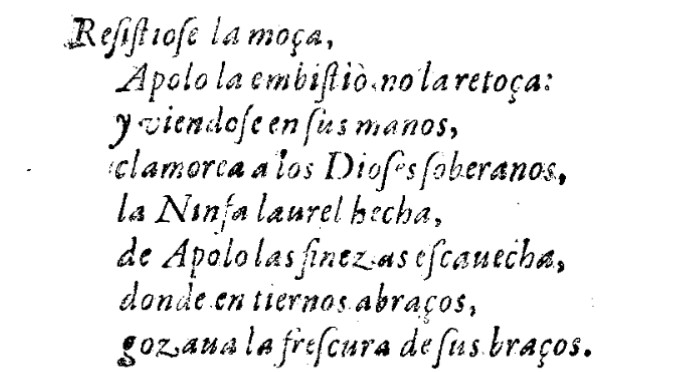 Reſiſtioſe la moça,
Apolo la embiſtiò, no la retoça:
y viendoſe en ſus manos,
clamorea a los Dioſes ſoberanos,
la Ninfa laurel hecha,
de Apolo las finezas eſcauecha,
donde en tiernos abraços,
gozaua la freſcura de ſus braços.